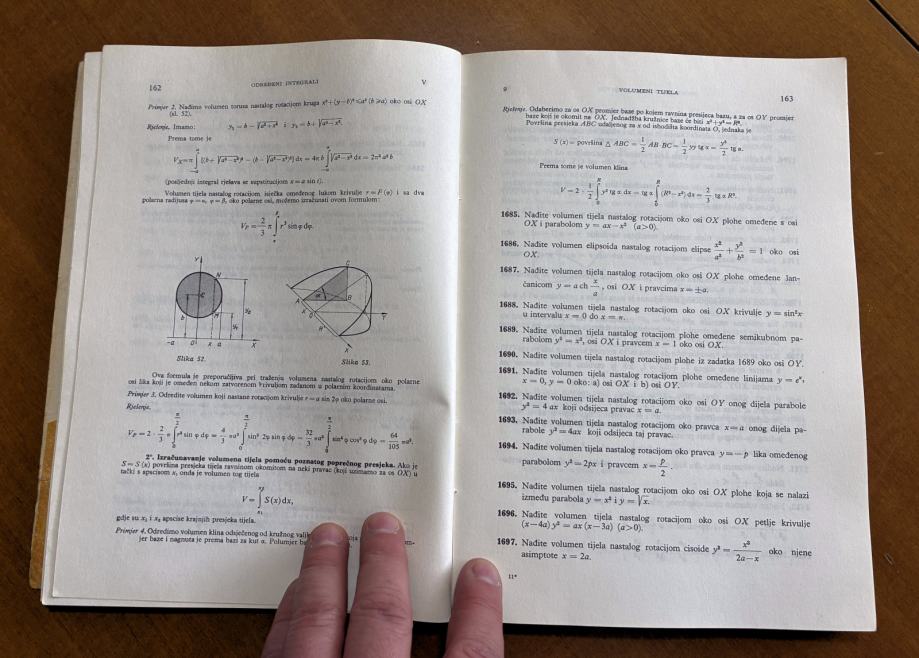 162
ODREĐENI INTEGRALI
V
Primjer 2. Nađimo volumen torusa nastalog rotacijom kruga x²+(y−b)²⩽a² (b⩾a) oko osi OX
(sl. 52).
Rješenje. Imamo: y₁ = b − √a²−x² i y₂ = b + √a²−x².
Prema tome je
Vₓ = π ∫₋ₐᵃ [(b + √a²−x²)² − (b − √a²−x²)²] dx = 4π b ∫₋ₐᵃ √a²−x² dx = 2π² a² b
(posljednji integral rješava se supstitucijom x = a sin t).
Volumen tijela nastalog rotacijom isječka omeđenog lukom krivulje r = F (φ) i sa dva
polarna radijusa φ = α, φ = β, oko polarne osi, možemo izračunati ovom formulom:
V_P = 2/3 π ∫ r³ sin φ dφ.
Slika 52.
Slika 53.
Ova formula je preporučljiva pri traženju volumena nastalog rotacijom oko polarne
osi lika koji je omeđen nekom zatvorenom krivuljom zadanom u polarnim koordinatama.
Primjer 3. Odredite volumen koji nastane rotacijom krivulje r = a sin 2φ oko polarne osi.
Rješenje.
V_P = 2 · 2/3 π ∫₀^(π/2) r³ sin φ dφ = 4/3 πa³ ∫₀^(π/2) sin³ 2φ sin φ dφ = 32/3 πa³ ∫₀^(π/2) sin⁴ φ cos³ φ dφ = 64/105 πa³.
2°. Izračunavanje volumena tijela pomoću poznatog poprečnog presjeka. Ako je
S = S (x) površina presjeka tijela ravninom okomitom na neki pravac (koji uzimamo za os OX) u
tački s apscisom x, onda je volumen tog tijela
V = ∫ₓ₁ˣ² S(x) dx,
gdje su x₁ i x₂ apscise krajnjih presjeka tijela.
Primjer 4. Odredimo volumen klina odsječenog od kružnog
jer baze i nagnuta je prema bazi za kut α. Polumjer
9
VOLUMENI TIJELA
163
Rješenje. Odaberimo za os OX promjer baze po kojem ravnina presijeca bazu, a za os OY promjer
baze koji je okomit na OX. Jednadžba kružnice baze će biti x²+y² = R².
Površina presjeka ABC udaljenog za x od ishodišta koordinata O, jednaka je
S (x) = površina △ ABC = 1/2 AB·BC = 1/2 yy tg α = y²/2 tg α.
Prema tome je volumen klina
V = 2 · 1/2 ∫₀ᴿ y² tg α dx = tg α ∫₀ᴿ (R²−x²) dx = 2/3 tg α R³.
1685. Nađite volumen tijela nastalog rotacijom oko osi OX plohe omeđene s osi
OX i parabolom y = ax−x² (a>0).
1686. Nađite volumen elipsoida nastalog rotacijom elipse x²/a² + y²/b² = 1 oko osi
OX.
1687. Nađite volumen tijela nastalog rotacijom oko osi OX plohe omeđene lan-
čanicom y = a ch x/a, osi OX i pravcima x = ±a.
1688. Nađite volumen tijela nastalog rotacijom oko osi OX krivulje y = sin²x
u intervalu x = 0 do x = π.
1689. Nađite volumen tijela nastalog rotacijom plohe omeđene semikubnom pa-
rabolom y² = x³, osi OX i pravcem x = 1 oko osi OX.
1690. Nađite volumen tijela nastalog rotacijom plohe iz zadatka 1689 oko osi OY.
1691. Nađite volumen tijela nastalog rotacijom plohe omeđene linijama y = eˣ,
x = 0, y = 0 oko: a) osi OX i b) osi OY.
1692. Nađite volumen tijela nastalog rotacijom oko osi OY onog dijela parabole
y² = 4 ax koji odsijeca pravac x = a.
1693. Nađite volumen tijela nastalog rotacijom oko pravca x = a onog dijela pa-
rabole y² = 4ax koji odsijeca taj pravac.
1694. Nađite volumen tijela nastalog rotacijom oko pravca y = − p lika omeđenog
parabolom y² = 2px i pravcem x = p/2.
1695. Nađite volumen tijela nastalog rotacijom oko osi OX plohe koja se nalazi
između parabola y = x² i y = √x.
1696. Nađite volumen tijela nastalog rotacijom oko osi OX petlje krivulje
(x−4a) y² = ax (x−3a) (a>0).
1697. Nađite volumen tijela nastalog rotacijom cisoide y² = x³/2a−x oko njene
asimptote x = 2a.
11*